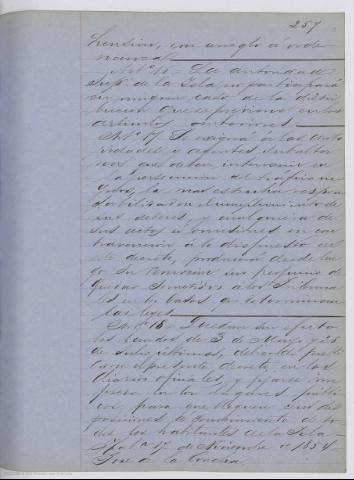 257
hension, con arreglo á orde
nanza.
Art.º 16. La autoridad
sup.r de la Isla no participará
en ningun caso de la distri
bucion que se previene en los
articulos anteriores.
Art.º 17. Se exigirá á las auto
ridades y agentes subalter
nos que deban intervenir en
la persecucion del tráfico ne
grero, la mas estrecha respon
sabilidad en el cumplimiento de
sus deberes, y cualquiera de
sus actos ú omisiones en con
travencion á lo dispuesto en
este decreto, producirá desde lue
go su remocion sin perjuicio de
quedar sometidos á los Tribuna
les en los casos que determinan
las leyes.
Art.º 18. Quedan sin efecto
los bandos de 3 de Mayo y 28
de Julio últimos, debiendo publi
carse el presente decreto en los
Diarios oficiales, y fijarse im
preso en los lugares públi
cos, para que lleguen sus dis
posiciones á conocimiento de to
dos los habitantes de la Isla.
Hab.a 17 de Noviembre de 1854.
José de la Concha.